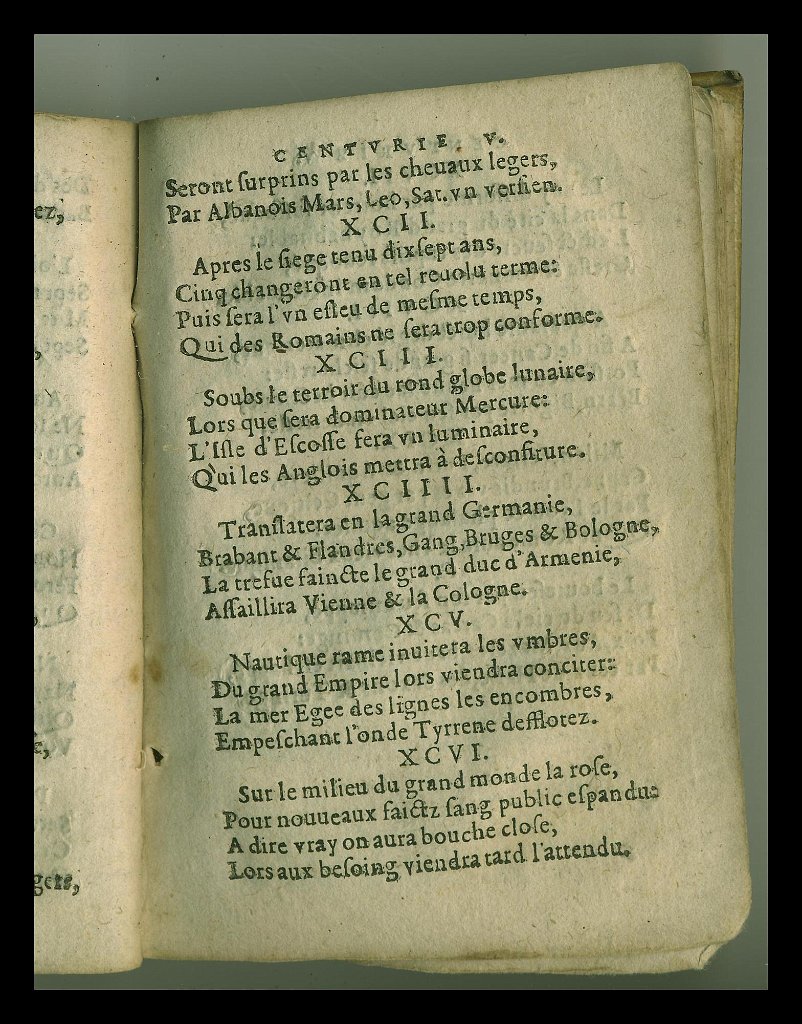 ez,
gers,
CENTVRIE V.
Seront ſurprins par les cheuaux legers,
Par Albanois Mars, Leo, Sat. vn verſien.
XCII.
Apres le ſiege tenu dixſept ans,
Cinq changeront en tel reuolu terme:
Puis ſera l'vn eſleu de meſme temps,
Qui des Romains ne ſera trop conforme.
XCIII.
Soubs le terroir du rond globe lunaire,
Lors que ſera dominateur Mercure:
L'Iſle d'Eſcoſſe fera vn luminaire,
Qui les Anglois mettra à deſconfiture.
XCIIII.
Tranſlatera en la grand Germanie,
Brabant & Flandres, Gang, Bruges & Bologne,
La trefue faincte le grand duc d'Armenie,
Aſſaillira Vienne & la Cologne.
XCV.
Nautique rame inuitera les vmbres,
Du grand Empire lors viendra conciter:
La mer Egee des lignes les encombres,
Empeſchant l'onde Tyrrene defflotez.
XCVI.
Sur le milieu du grand monde la roſe,
Pour nouueaux faictz ſang public eſpandu:
A dire vray on aura bouche cloſe,
Lors aux beſoing viendra tard l'attendu.